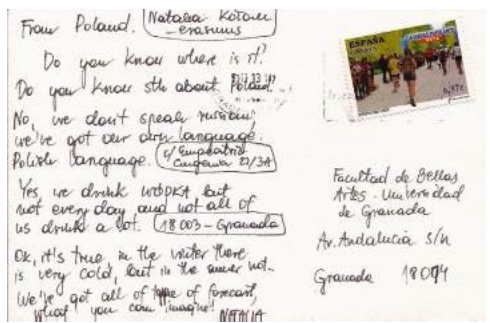 From Poland.
Natalia
- erasmus
Do you know where is it?
Do you know sth about Poland?
No, we don't speak russian,
we've got our own language.
Polish language.
c/ Emperatriz
Eugenia 22/3A
Yes we drink WODKA but
not every day and not all of
us drink a lot.
18003 - Granada
Ok, it's true in the winter there
is very cold, but in the summer not..
We've got all of type of forecast,
what you can imagine!
NATALIA
ESPAÑA
0,31€
Facultad de Bellas
Artes - Universidad
de Granada
Av. Andalucía s/n
Granada 18014